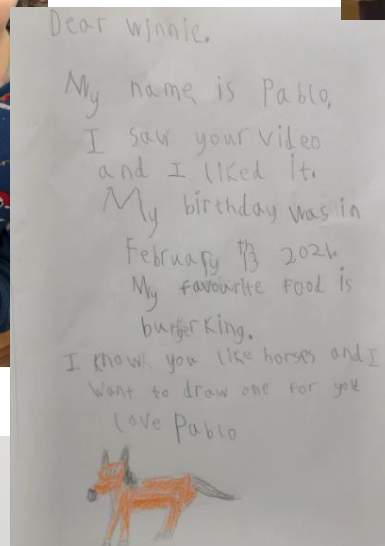 Dear winnie.
My name is Pablo,
I saw your video
and I liked it.
My birthday was in
February 13th 2021.
My favourite food is
burger King.
I know you like horses and I
want to draw one for you
Love Pablo